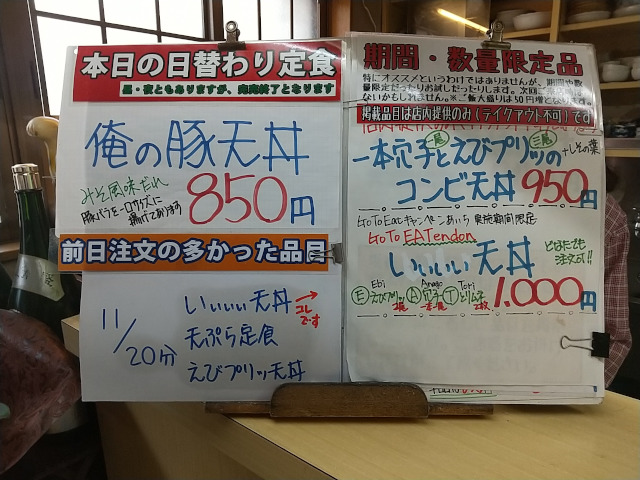 本日の日替わり定食
昼・夜ともありますが、完売終了となります
俺の豚天丼
みそ風味だれ
豚バラを一口サイズに
揚げております
850円
前日注文の多かった品目
11/20分
いいいい天丼
→コレです
天ぷら定食
えびプリッ天丼
期間・数量限定品
特にオススメというわけではありませんが、期間や数
量限定だったりお試しだったりします。次回、
ないかもしれません。※ご飯大盛りは50円増となります
掲載品目は店内提供のみ(テイクアウト不可)です
一本穴子とえびプリッの
二尾
+しその葉
コンビ天丼 950円
GoToEatキャンペーンあいち 実施期間限定
GoTo EATendon
いいいい天丼
どなたでも
注文可!!
Ebi Anago Tori
Eえびプリッ A穴子 Tとりムネ
2尾 一本 2枚
1,000円